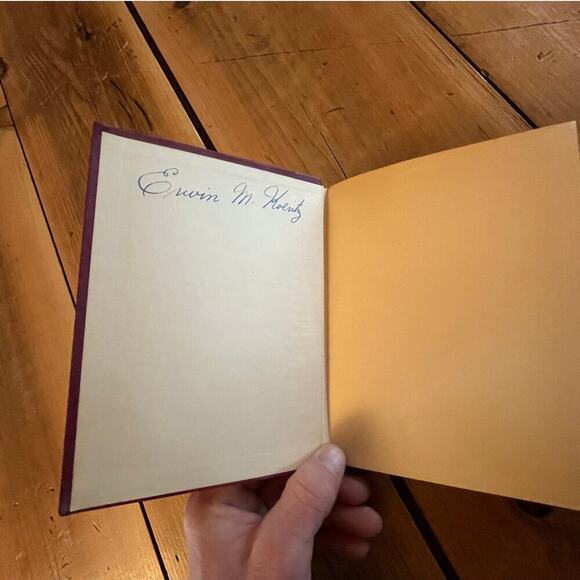 Erwin M. Koeritz